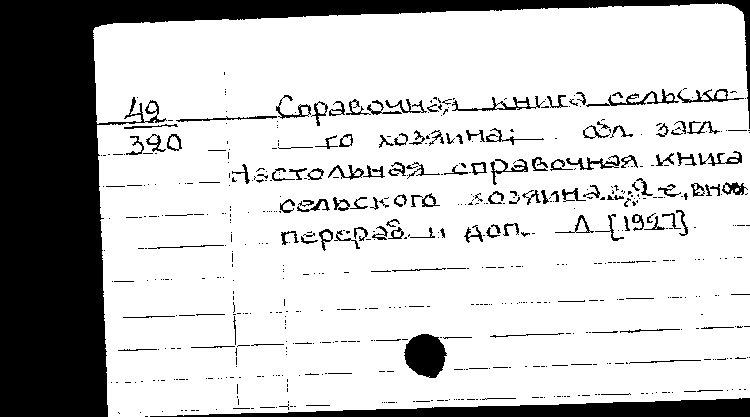 49
390
Справочная книга сельско-
го хозяина; обл. загл.
Настольная справочная книга
сельского хозяина. 2-е, вновь
перераб и доп. Л [1927]